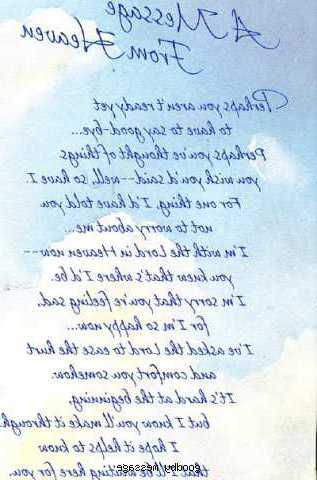 A Message
From Heaven
Perhaps you aren't ready yet
to have to say good-bye...
Perhaps you've thought of things
you wish you'd said--well, so have I.
For one thing, I'd have told you
not to worry about me...
I'm with the Lord in Heaven now--
you knew that's where I'd be.
I'm sorry that you're feeling sad,
for I'm so happy now...
I've asked the Lord to ease the hurt
and comfort you somehow.
It's hard at the beginning,
but I know you'll make it through
I hope it helps to know
that I'll be waiting here for you.
goodbu message